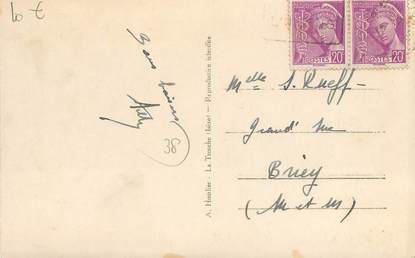 10 €
Bons baisers
38
A. Hourlier - La Tronche (Isère) - Reproduction interdite
POSTES 20
POSTES 20
Melle S. Rueff
Grand' rue
Briey
(M et M)